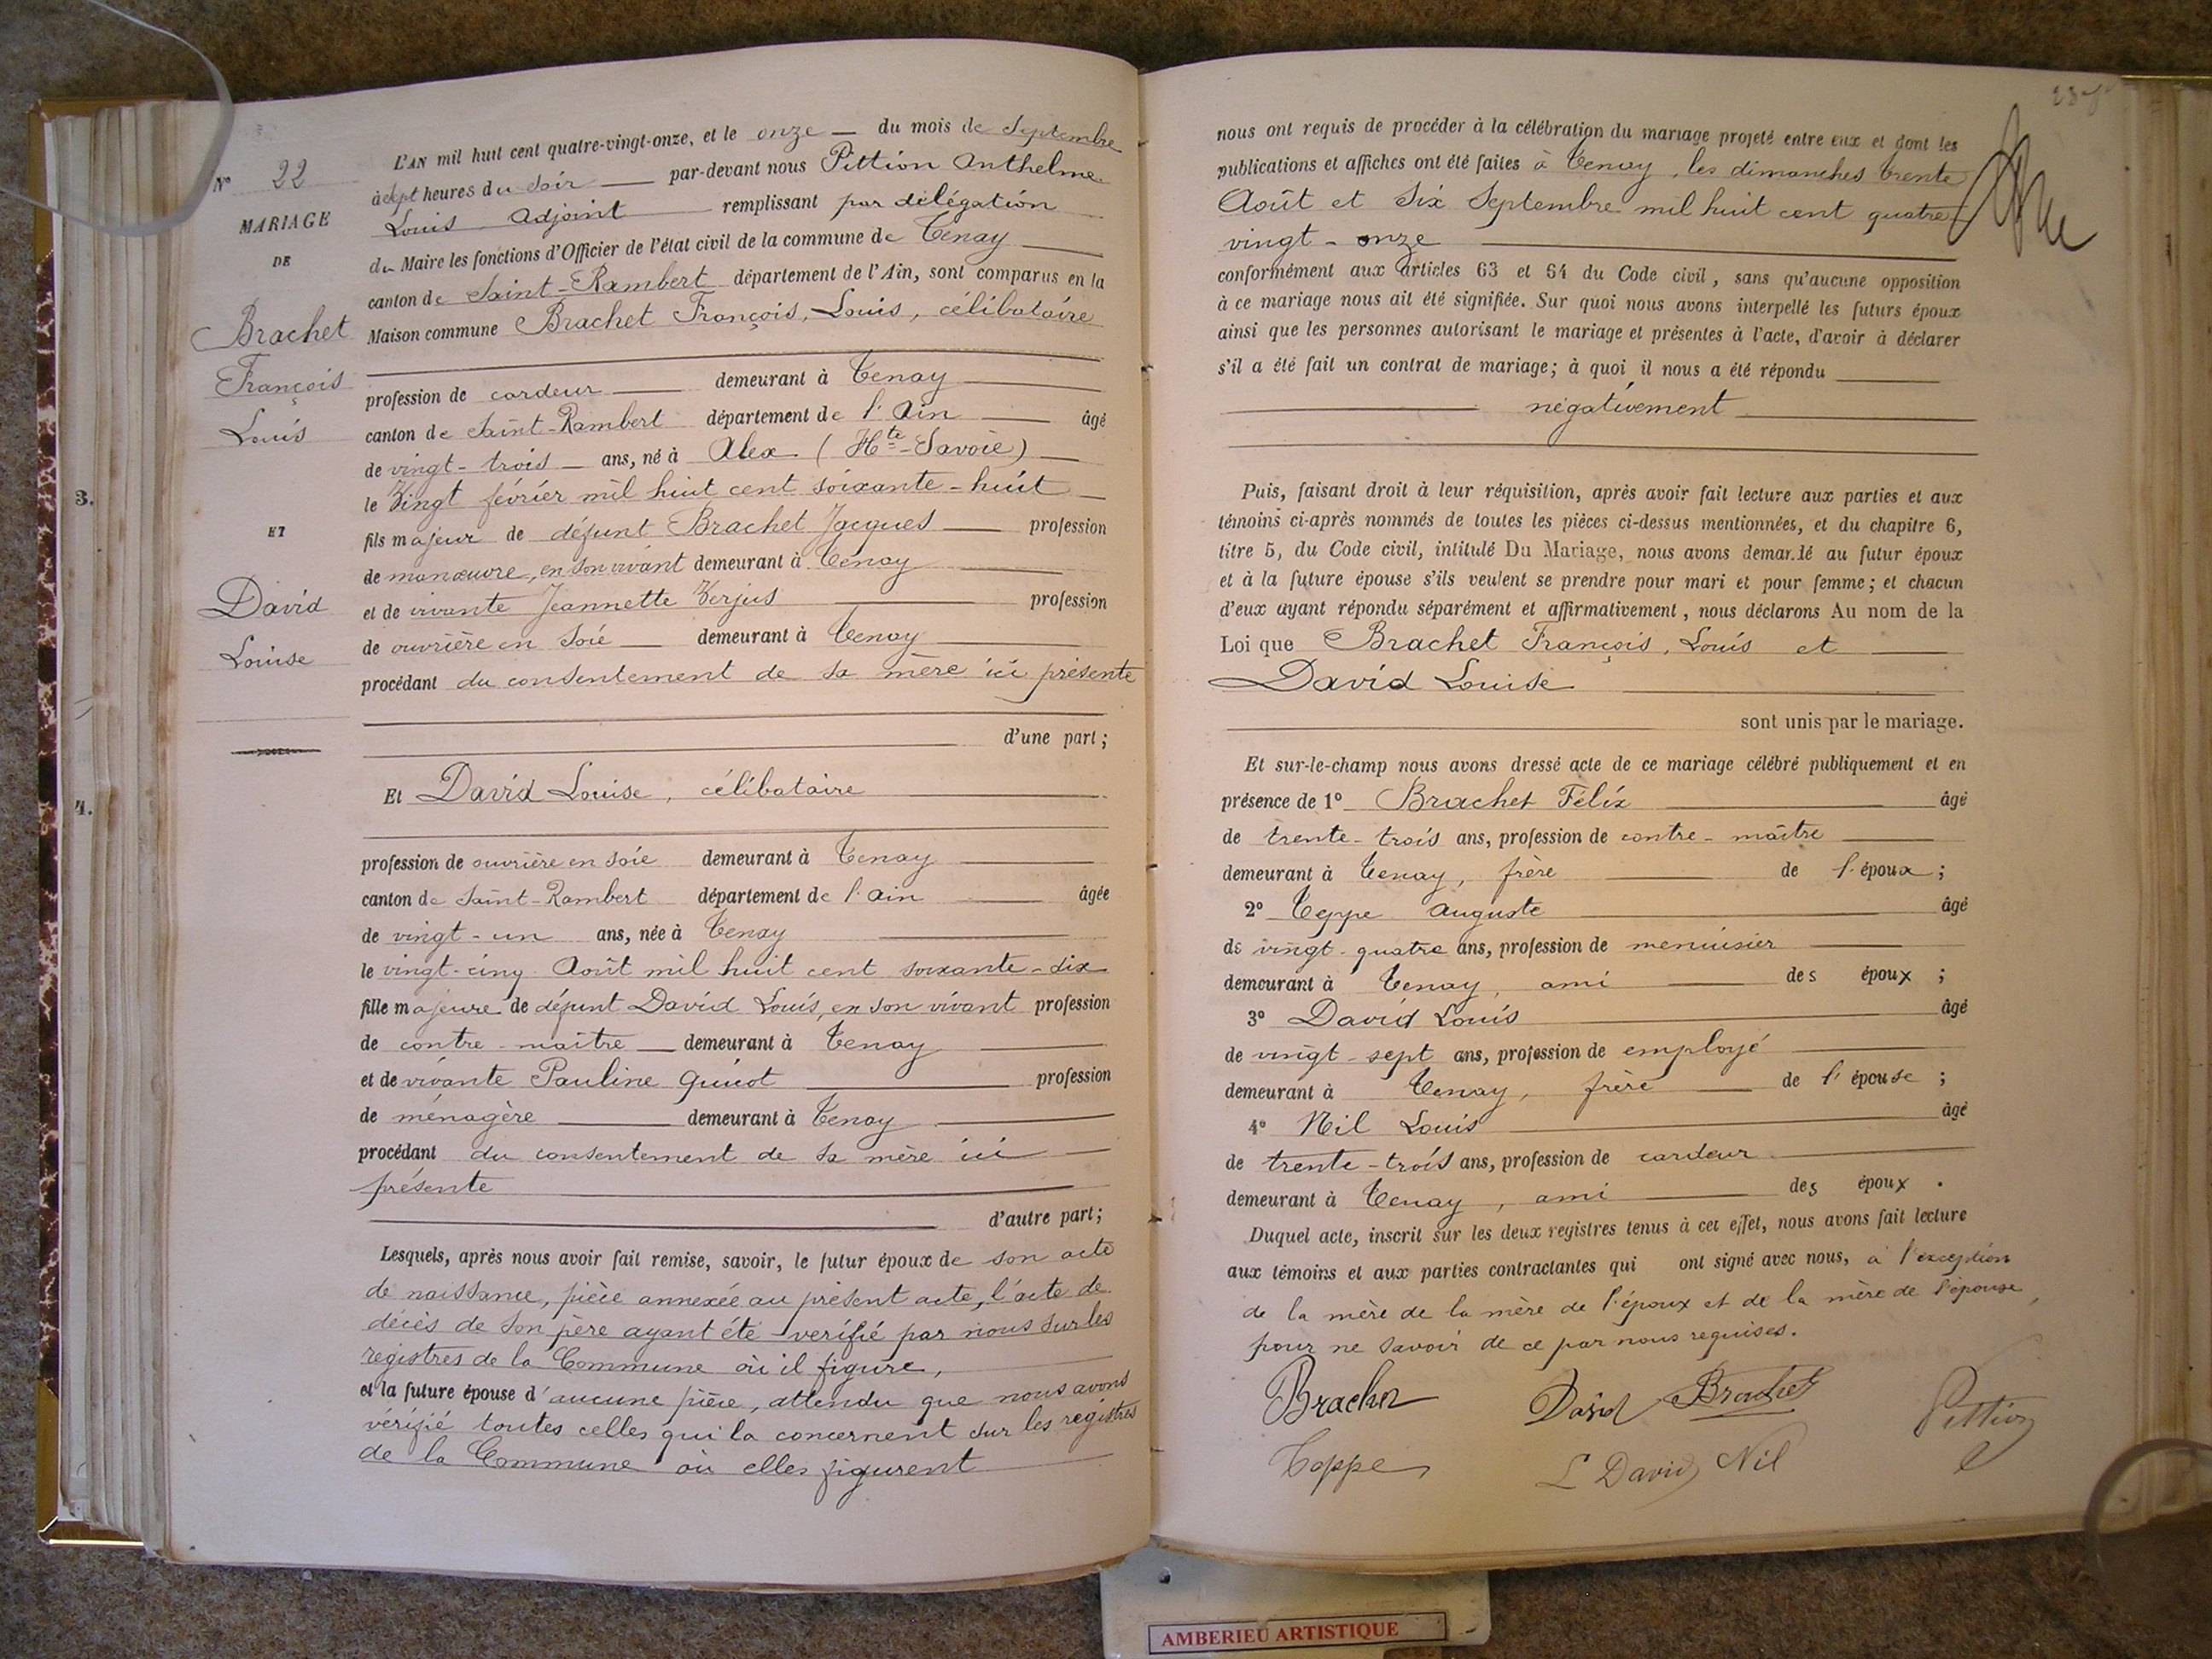 N° 22
MARIAGE
DE
Brachet
François
Louis
ET
David
Louise
3.
4.
L'AN mil huit cent quatre-vingt-onze, et le onze — du mois de Septembre
à sept heures du soir — par-devant nous Pittion Anthelme
Louis Adjoint — remplissant par délégation
du Maire les fonctions d'Officier de l'état civil de la commune de Tenay —
canton de Saint-Rambert département de l'Ain, sont comparus en la
Maison commune Brachet François, Louis, célibataire
profession de cardeur — demeurant à Tenay —
canton de Saint-Rambert département de l'Ain — âgé
de vingt-trois — ans, né à Alex (Hte-Savoie) —
le Vingt février mil huit cent soixante-huit —
fils majeur de défunt Brachet Jacques — profession
de manœuvre, en son vivant demeurant à Tenay —
et de vivante Jeannette Verjus — profession
de ouvrière en soie — demeurant à Tenay —
procédant du consentement de sa mère ici présente
d'une part ;
Et David Louise, célibataire —
profession de ouvrière en soie demeurant à Tenay —
canton de Saint-Rambert département de l'Ain — âgée
de vingt-un ans, née à Tenay —
le vingt-cinq Août mil huit cent soixante-dix
fille majeure de défunt David Louis, en son vivant profession
de contre-maître — demeurant à Tenay —
et de vivante Pauline Guiot — profession
de ménagère — demeurant à Tenay —
procédant du consentement de sa mère ici —
présente —
d'autre part ;
Lesquels, après nous avoir fait remise, savoir, le futur époux de son acte
de naissance, pièce annexée au présent acte, l'acte de
décès de son père ayant été vérifié par nous sur les
registres de la Commune où il figure, —
et la future épouse d'aucune pièce, attendu que nous avons
vérifié toutes celles qui la concernent sur les registres
de la Commune où elles figurent —
nous ont requis de procéder à la célébration du mariage projeté entre eux et dont les
publications et affiches ont été faites à Tenay, les dimanches trente
Août et Six Septembre mil huit cent quatre
vingt-onze —
conformément aux articles 63 et 64 du Code civil, sans qu'aucune opposition
à ce mariage nous ait été signifiée. Sur quoi nous avons interpellé les futurs époux
ainsi que les personnes autorisant le mariage et présentes à l'acte, d'avoir à déclarer
s'il a été fait un contrat de mariage ; à quoi il nous a été répondu —
— négativement —
Puis, faisant droit à leur réquisition, après avoir fait lecture aux parties et aux
témoins ci-après nommés de toutes les pièces ci-dessus mentionnées, et du chapitre 6,
titre 5, du Code civil, intitulé Du Mariage, nous avons demandé au futur époux
et à la future épouse s'ils veulent se prendre pour mari et pour femme ; et chacun
d'eux ayant répondu séparément et affirmativement, nous déclarons Au nom de la
Loi que Brachet François, Louis et —
David Louise —
— sont unis par le mariage.
Et sur-le-champ nous avons dressé acte de ce mariage célébré publiquement et en
présence de 1° Brachet Félix — âgé
de trente-trois ans, profession de contre-maître —
demeurant à Tenay, frère — de l'époux ;
2° Teppe Auguste — âgé
de vingt-quatre ans, profession de menuisier —
demeurant à Tenay, ami — des époux ;
3° David Louis — âgé
de vingt-sept ans, profession de employé —
demeurant à Tenay, frère — de l'épouse ;
4° Nil Louis — âgé
de trente-trois ans, profession de cardeur —
demeurant à Tenay, ami — des époux .
Duquel acte, inscrit sur les deux registres tenus à cet effet, nous avons fait lecture
aux témoins et aux parties contractantes qui ont signé avec nous, à l'exception
de la mère de la mère de l'époux et de la mère de l'épouse,
pour ne savoir de ce par nous requises.
Brachet David Brachet Pittion
Teppe L David Nil
AMBERIEU ARTISTIQUE